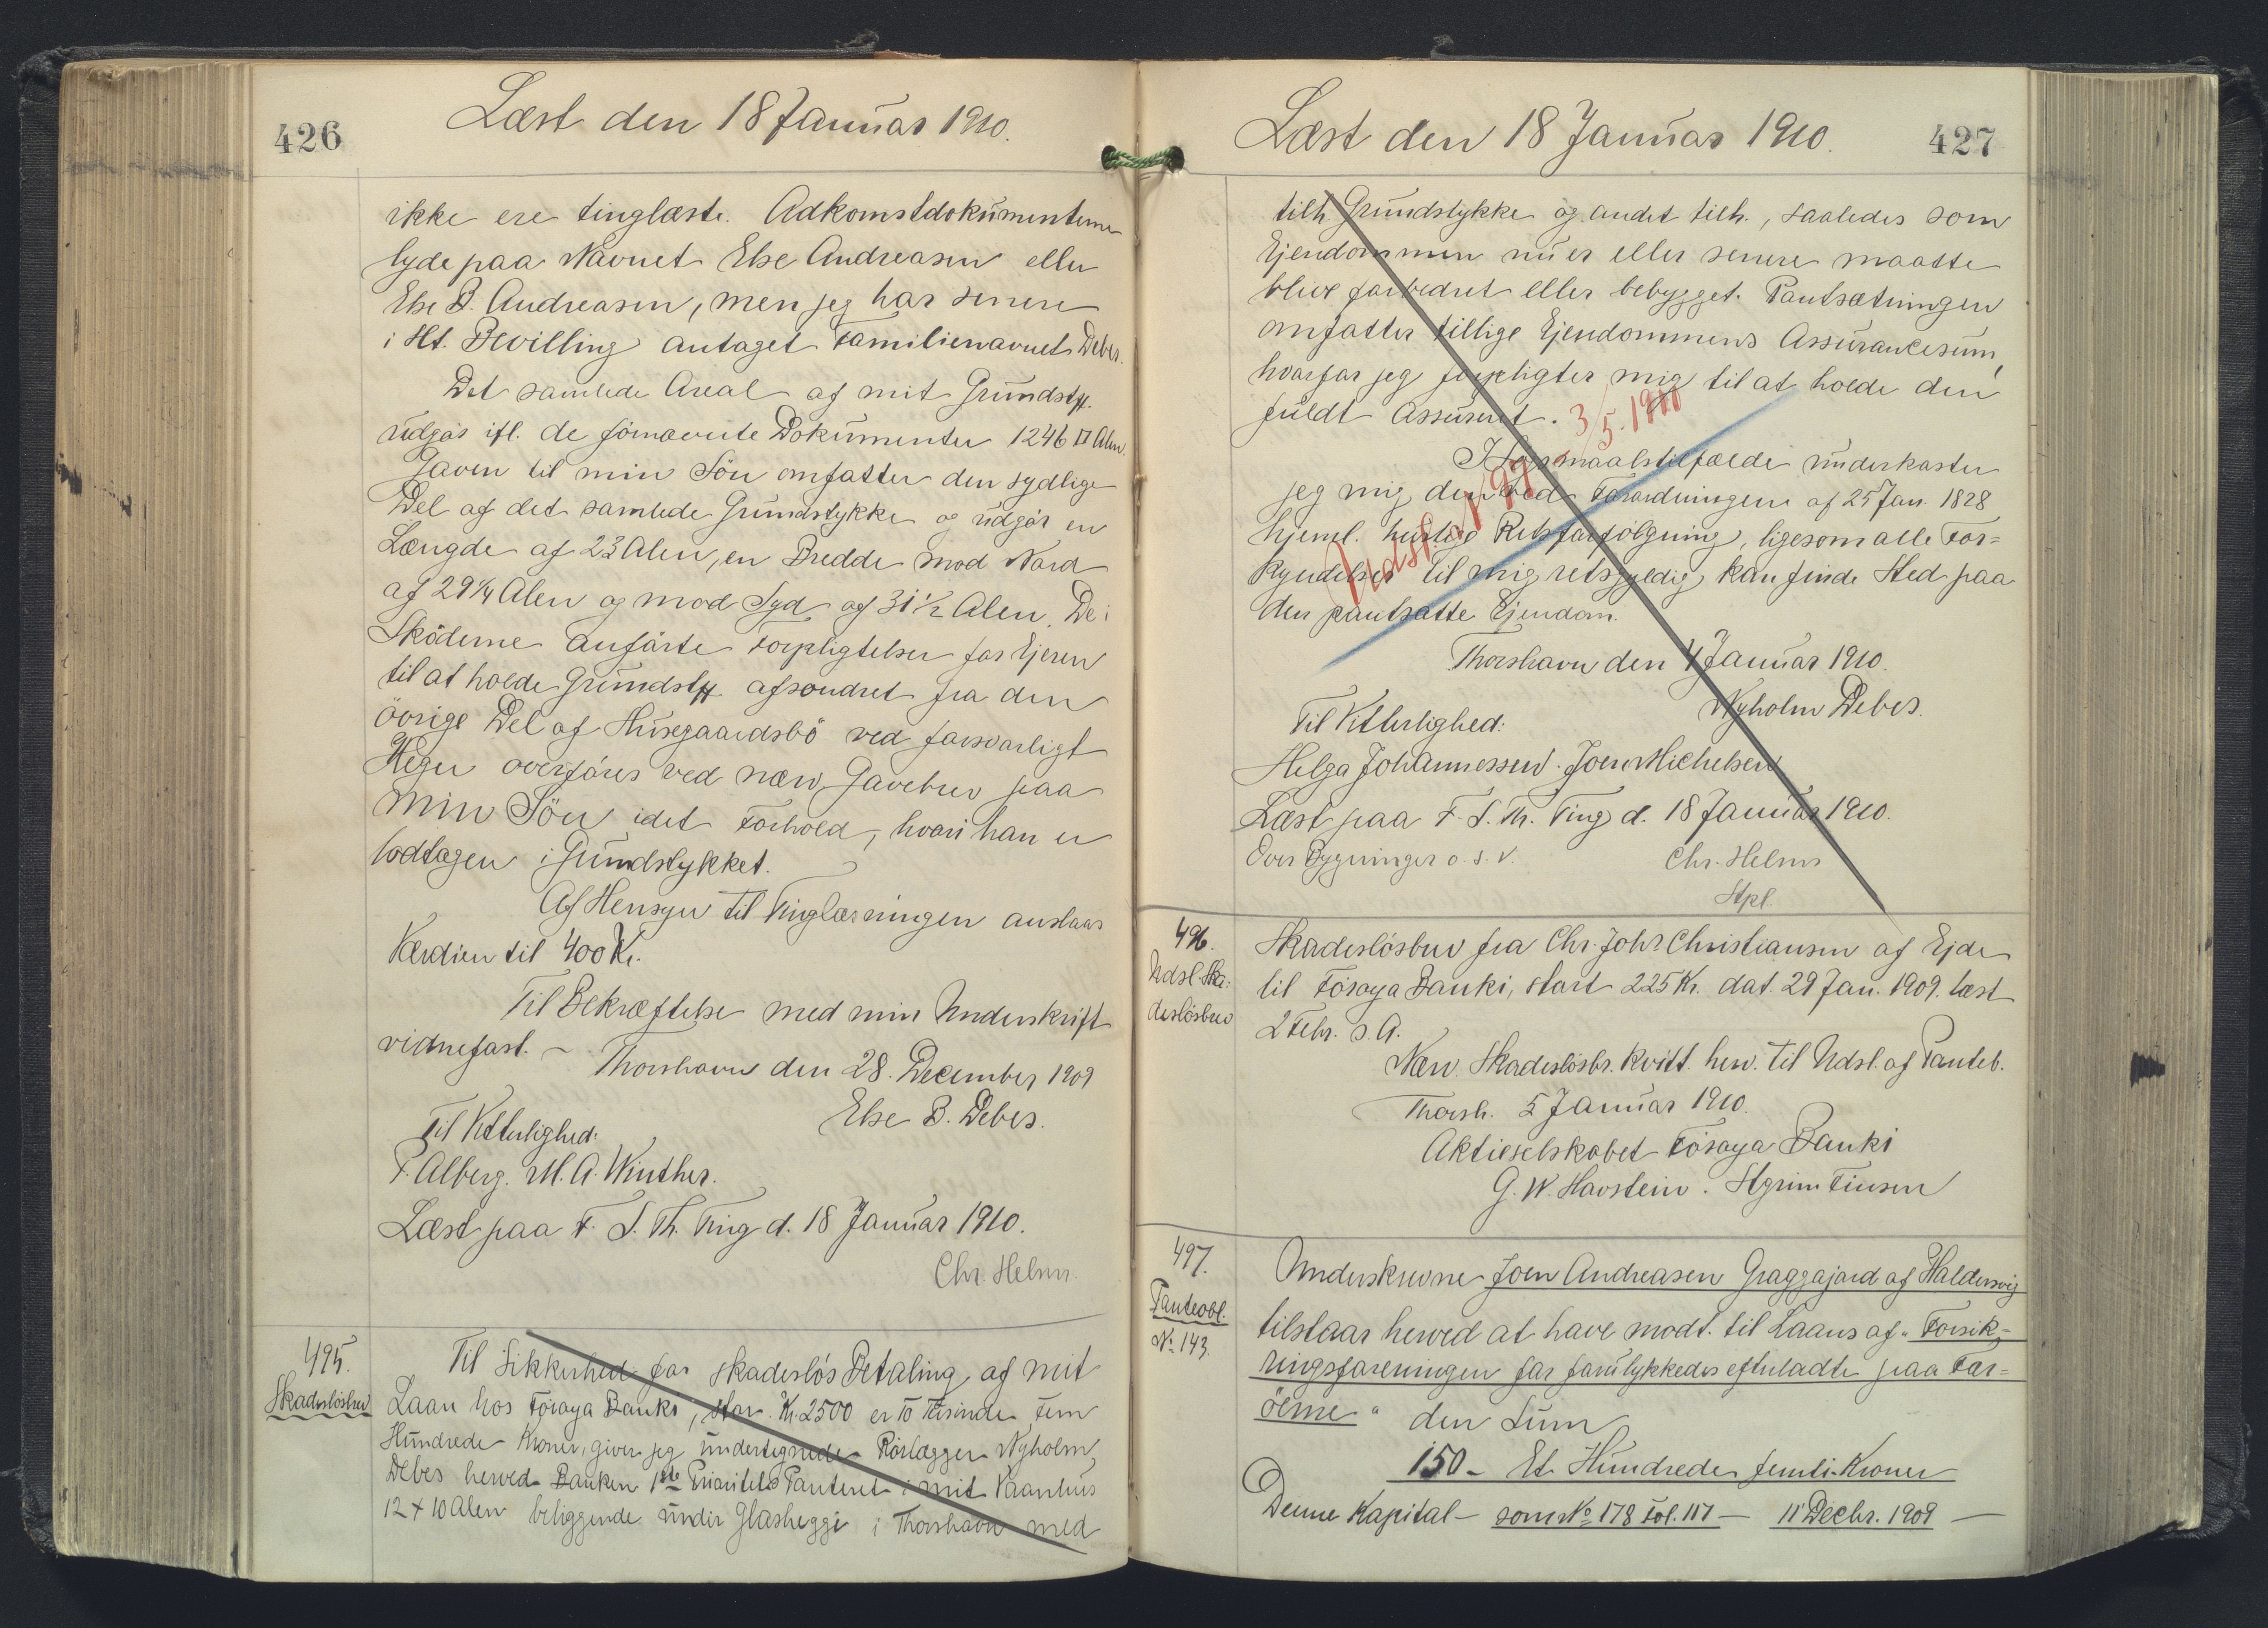 426
Læst den 18 Januar 1910.
ikke ere tinglæste. Adkomstdokumenterne
lyde paa Navnet Else Andreasen eller
Else B. Andreasen, men jeg har senere
i Hf. Bevilling antaget Familienavnet Debes.
Det samlede Areal af mit Grundst.
udgør ifl. de förnævnte Dokumenter 1246 □ Alen.
Gaven til min Sön omfatter den sydlige
Del af det samlede Grundstykke og udgör en
Længde af 23 Alen, en Bredde mod Nord
af 29 1/4 Alen og mod Syd af 31 1/2 Alen. De i
Sköderne anförte Forpligtelser for Ejeren
til at holde Grundst. afsondret fra den
övrige Del af Husegaardsbö ved forsvarligt
Hegn overföres ved nærv. Gavebrev paa
min Sön idet Forhold, hvori han er
lodtagen i Grundstykket.
Af Hensyn til Tinglæsningen anslaas
Værdien til 400 Kr.
Til Bekræftelse med min Underskrift
vidnefast. - Thorshavn den 28. December 1909
Else B. Debes.
Til Vitterlighed:
F. Alberg. M. A. Winther.
Læst paa F. S. Th. Ting d. 18 Januar 1910.
Chr. Helms.
495.
Skadeslösbrev
Til Sikkerhed for skadeslös Betaling af mit
Laan hos Föroya Banki, stor Kr. 2500 er To Tusinde Fem
Hundrede Kroner, giver jeg undertegnede Rörlægger Nyholm
Debes herved Banken 1ste Prioritets Panteret i mit Vaanhus
12 + 10 Alen beliggende under Glasheggi i Thorshavn med
Læst den 18 Januar 1910.
427
tilh. Grundstykke og andet tilh., saaledes som
Ejendommen nu er eller senere maatte
blive forbedret eller bebygget. Pantsætningen
omfatter tillige Ejendommens Assurancesum,
hvorfor jeg forpligter mig til at holde den
fuldt assureret.
I Sögsmaalstilfælde underkaster
jeg mig den ved Forordningen af 25 Jan. 1828
hjeml. hurtige Retsforfölgning, ligesom alle For=
kyndelser til mig retsgyldig kan finde Sted paa
den pantsatte Ejendom.
Thorshavn den 4 Januar 1910.
Nyholm Debes.
Til Vitterlighed:
Helga Johannessen. Joen Michelsen
Læst paa F. S. Th. Ting d. 18 Januar 1910.
Over Bygninger o. s. v. Chr. Helms
Stpl.
496.
Udsl. Ska:
deslösbrev
Skadeslösbrev fra Chr. Johs Christiansen af Ejde
til Föroya Banki, stort 225 Kr. dat. 29 Jan. 1909. læst
2 Febr. s. A.
Nærv. Skadeslösbr. kvitt. henv. til Udsl. af Panteb.
Thorsh. 5 Januar 1910.
Aktieselskabet Föroya Banki
G. W. Havstein.
497.
Panteobl.
No. 143.
Underskrevne Joen Andreasen Graggajard af Haldersvig
tilstaar herved at have modt. til Laans af "Forsik-
ringsforeningen for forulykkedes efterladte paa Fær=
öerne" den Sum
150 - Et Hundrede femti Kroner
Denne Kapital - som No 178 Fol. 117 - 11 Decbr. 1909 -